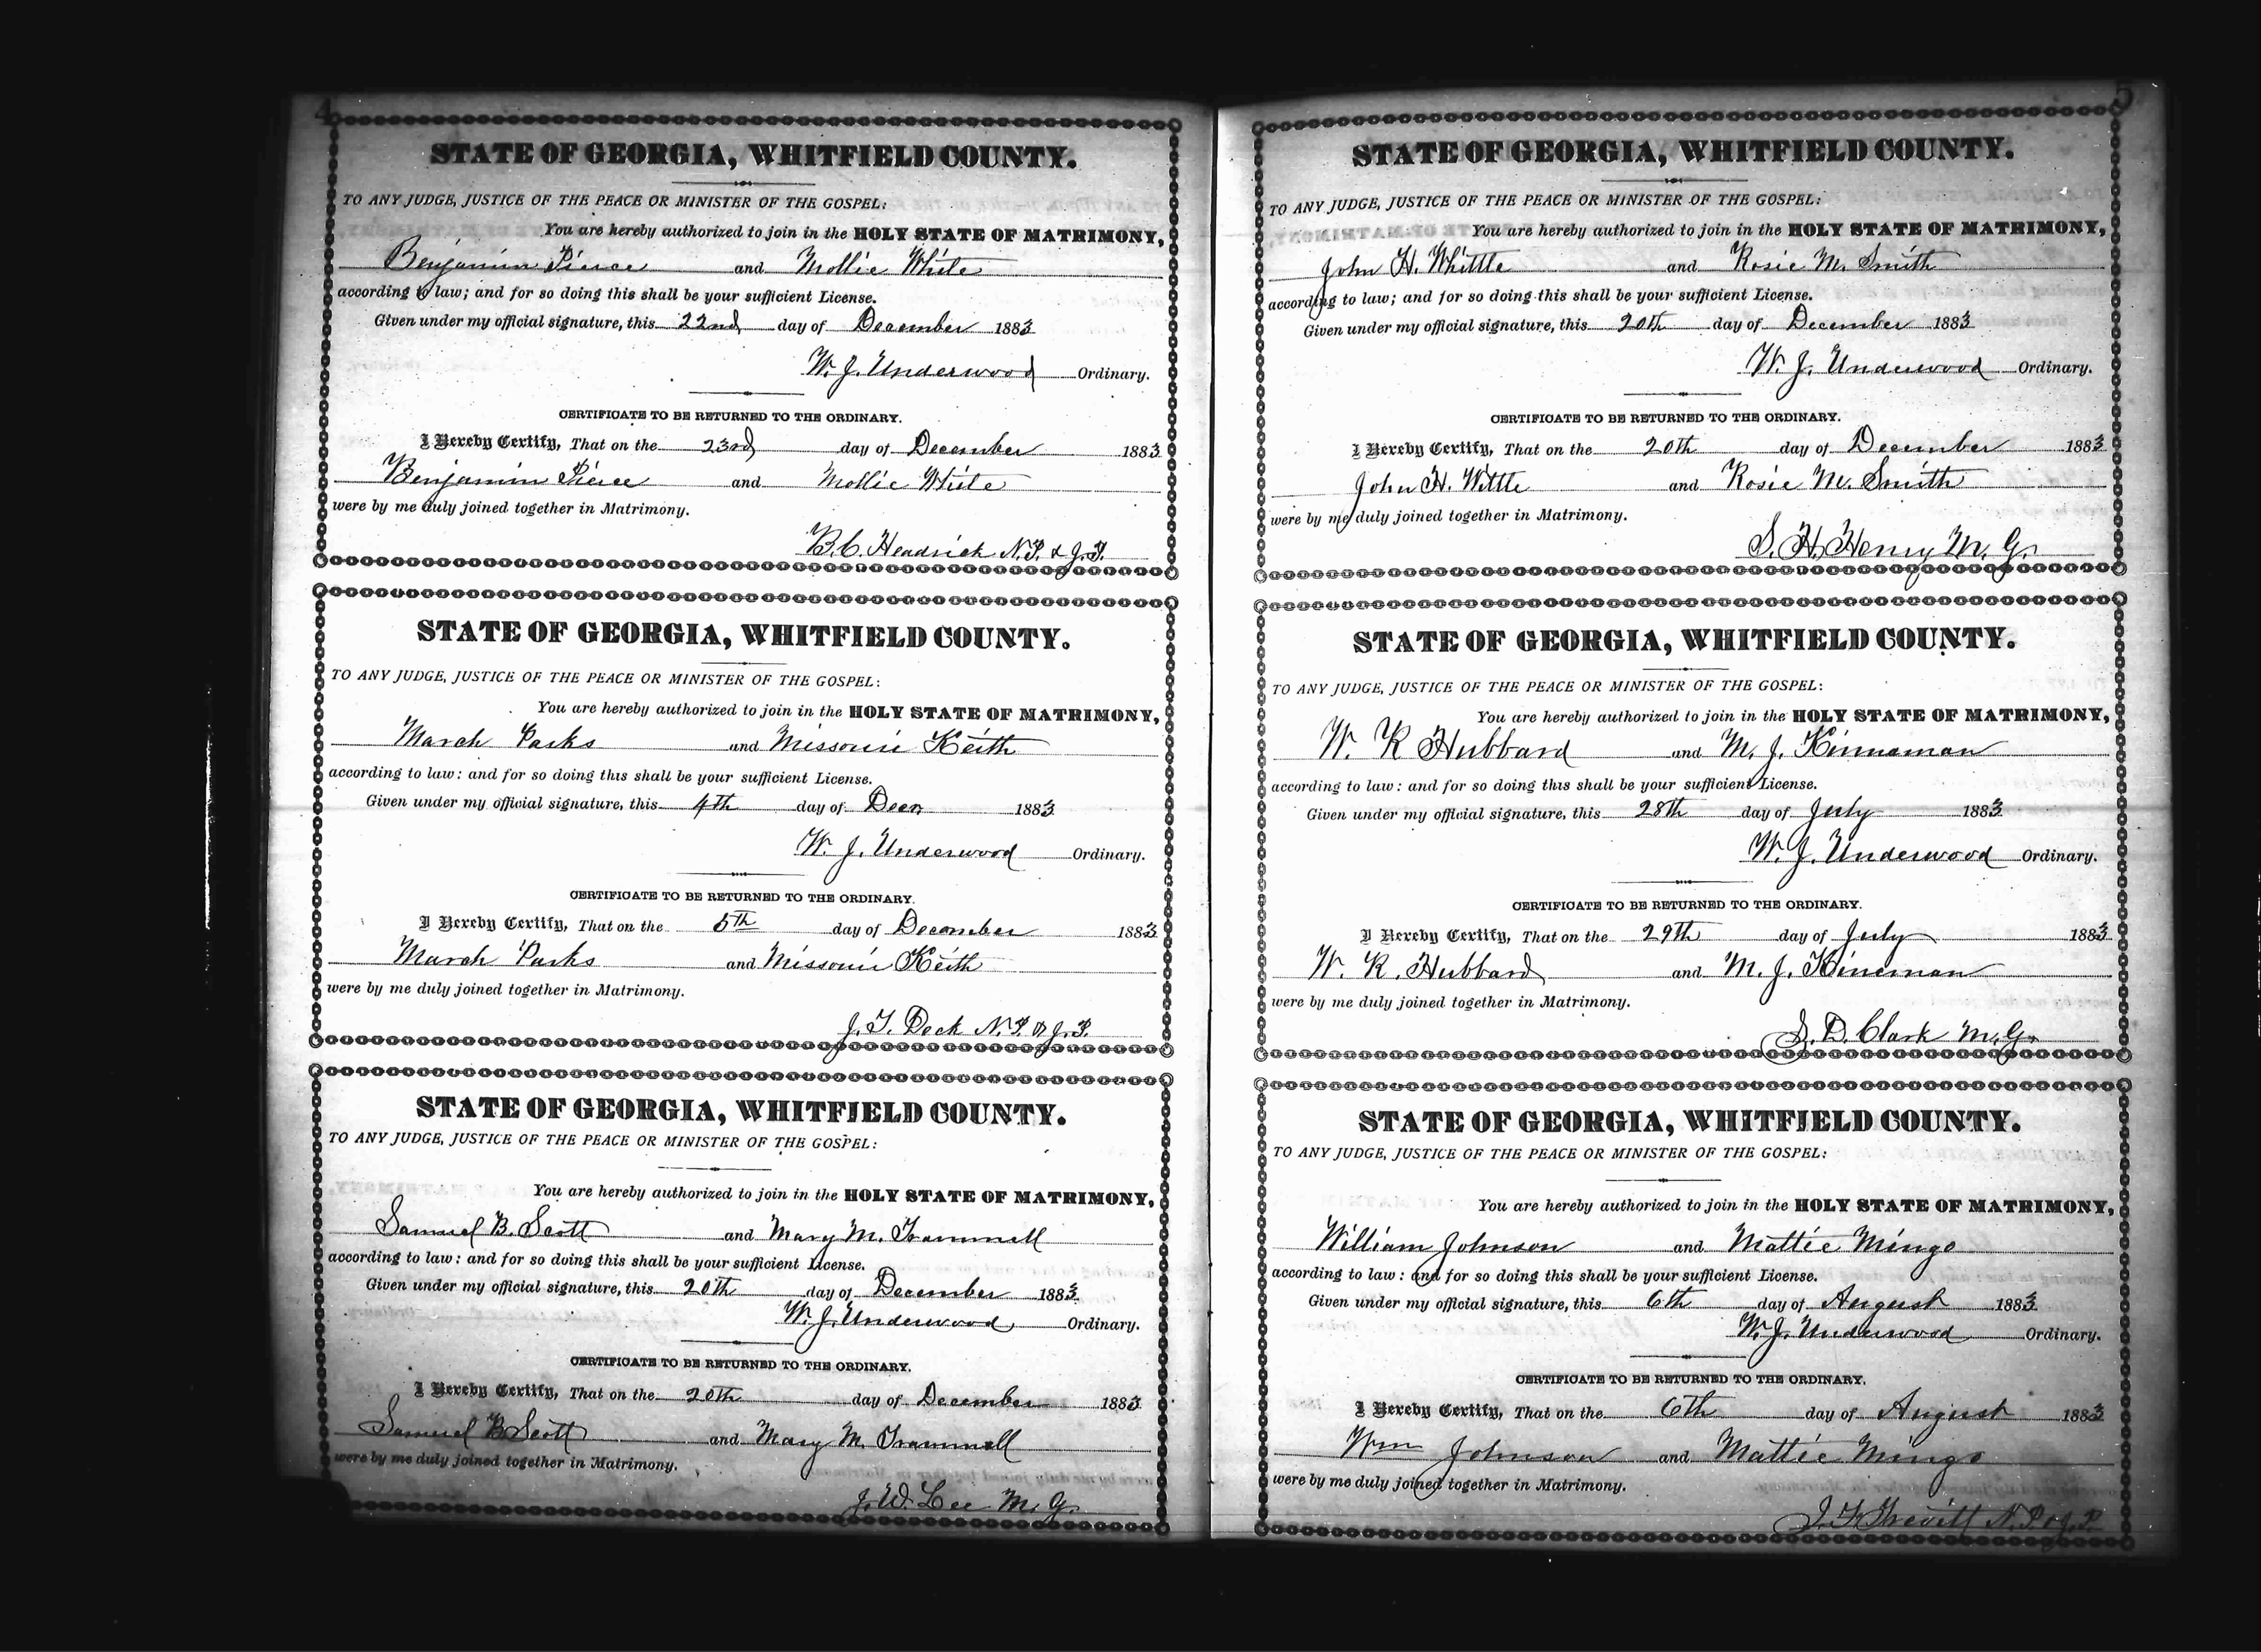 4
STATE OF GEORGIA, WHITFIELD COUNTY.
TO ANY JUDGE, JUSTICE OF THE PEACE OR MINISTER OF THE GOSPEL:
You are hereby authorized to join in the HOLY STATE OF MATRIMONY,
Benjamin Pierce and Mollie White
according to law; and for so doing this shall be your sufficient License.
Given under my official signature, this 22nd day of December 1883
W. J. Underwood Ordinary.
CERTIFICATE TO BE RETURNED TO THE ORDINARY.
I Hereby Certify, That on the 23rd day of December 1883
Benjamin Pierce and Mollie White
were by me duly joined together in Matrimony.
B. C. Headrick N.P. & J.P.
STATE OF GEORGIA, WHITFIELD COUNTY.
TO ANY JUDGE, JUSTICE OF THE PEACE OR MINISTER OF THE GOSPEL:
You are hereby authorized to join in the HOLY STATE OF MATRIMONY,
March Parks and Missouri Keith
according to law: and for so doing this shall be your sufficient License.
Given under my official signature, this 4th day of Decr 1883
W. J. Underwood Ordinary.
CERTIFICATE TO BE RETURNED TO THE ORDINARY.
I Hereby Certify, That on the 5th day of December 1883
March Parks and Missouri Keith
were by me duly joined together in Matrimony.
J. T. Deck N.P. & J.P.
STATE OF GEORGIA, WHITFIELD COUNTY.
TO ANY JUDGE, JUSTICE OF THE PEACE OR MINISTER OF THE GOSPEL:
You are hereby authorized to join in the HOLY STATE OF MATRIMONY,
Samuel B. Scott and Mary M. Trammell
according to law: and for so doing this shall be your sufficient License.
Given under my official signature, this 20th day of December 1883.
W. J. Underwood Ordinary.
CERTIFICATE TO BE RETURNED TO THE ORDINARY.
I Hereby Certify, That on the 20th day of December 1883
Samuel B. Scott and Mary M. Trammell
were by me duly joined together in Matrimony.
J. W. Lee M. G.
5
STATE OF GEORGIA, WHITFIELD COUNTY.
TO ANY JUDGE, JUSTICE OF THE PEACE OR MINISTER OF THE GOSPEL:
You are hereby authorized to join in the HOLY STATE OF MATRIMONY,
John H. Whittle and Rosie M. Smith
according to law; and for so doing this shall be your sufficient License.
Given under my official signature, this 20th day of December 1883
W. J. Underwood Ordinary.
CERTIFICATE TO BE RETURNED TO THE ORDINARY.
I Hereby Certify, That on the 20th day of December 1883
John H. Wittle and Rosie M. Smith
were by me duly joined together in Matrimony.
S. H. Henry M. G.
STATE OF GEORGIA, WHITFIELD COUNTY.
TO ANY JUDGE, JUSTICE OF THE PEACE OR MINISTER OF THE GOSPEL:
You are hereby authorized to join in the HOLY STATE OF MATRIMONY,
W. R Hubbard and M. J. Kinnaman
according to law: and for so doing this shall be your sufficient License.
Given under my official signature, this 28th day of July 1883
W. J. Underwood Ordinary.
CERTIFICATE TO BE RETURNED TO THE ORDINARY.
I Hereby Certify, That on the 29th day of July 1883
W. R. Hubbard and M. J. Kineman
were by me duly joined together in Matrimony.
S. D. Clark M. G.
STATE OF GEORGIA, WHITFIELD COUNTY.
TO ANY JUDGE, JUSTICE OF THE PEACE OR MINISTER OF THE GOSPEL:
You are hereby authorized to join in the HOLY STATE OF MATRIMONY,
William Johnson and Mattie Mingo
according to law: and for so doing this shall be your sufficient License.
Given under my official signature, this 6th day of August 1883
W. J. Underwood Ordinary.
CERTIFICATE TO BE RETURNED TO THE ORDINARY.
I Hereby Certify, That on the 6th day of August 1883
Wm Johnson and Mattie Mingo
were by me duly joined together in Matrimony.
N.P. & J.P.